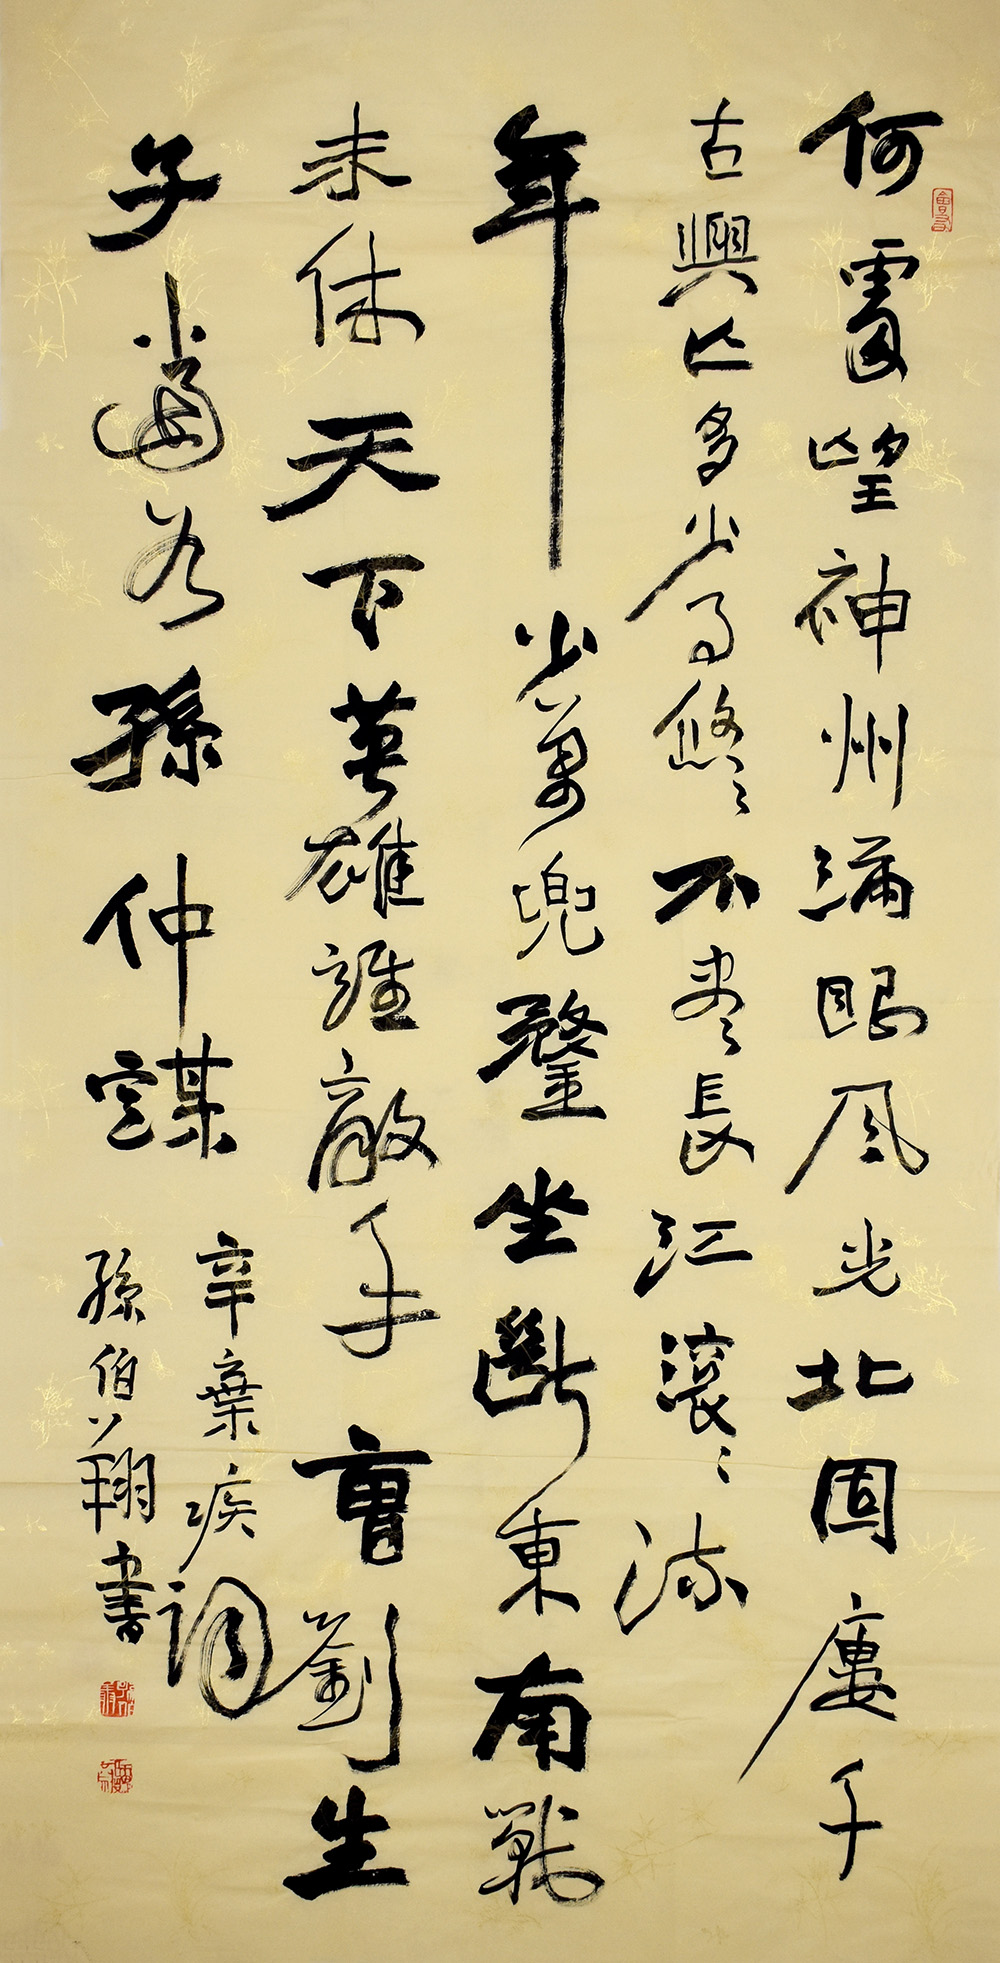 何處望神州滿眼風光北固廔千
古興亡多少事悠〻不盡長江滾〻流
年少萬兜鍪坐斷東南戰
未休天下英雄誰敵手曹劉生
子當如孫仲謀
辛棄疾詞
孫伯翔書